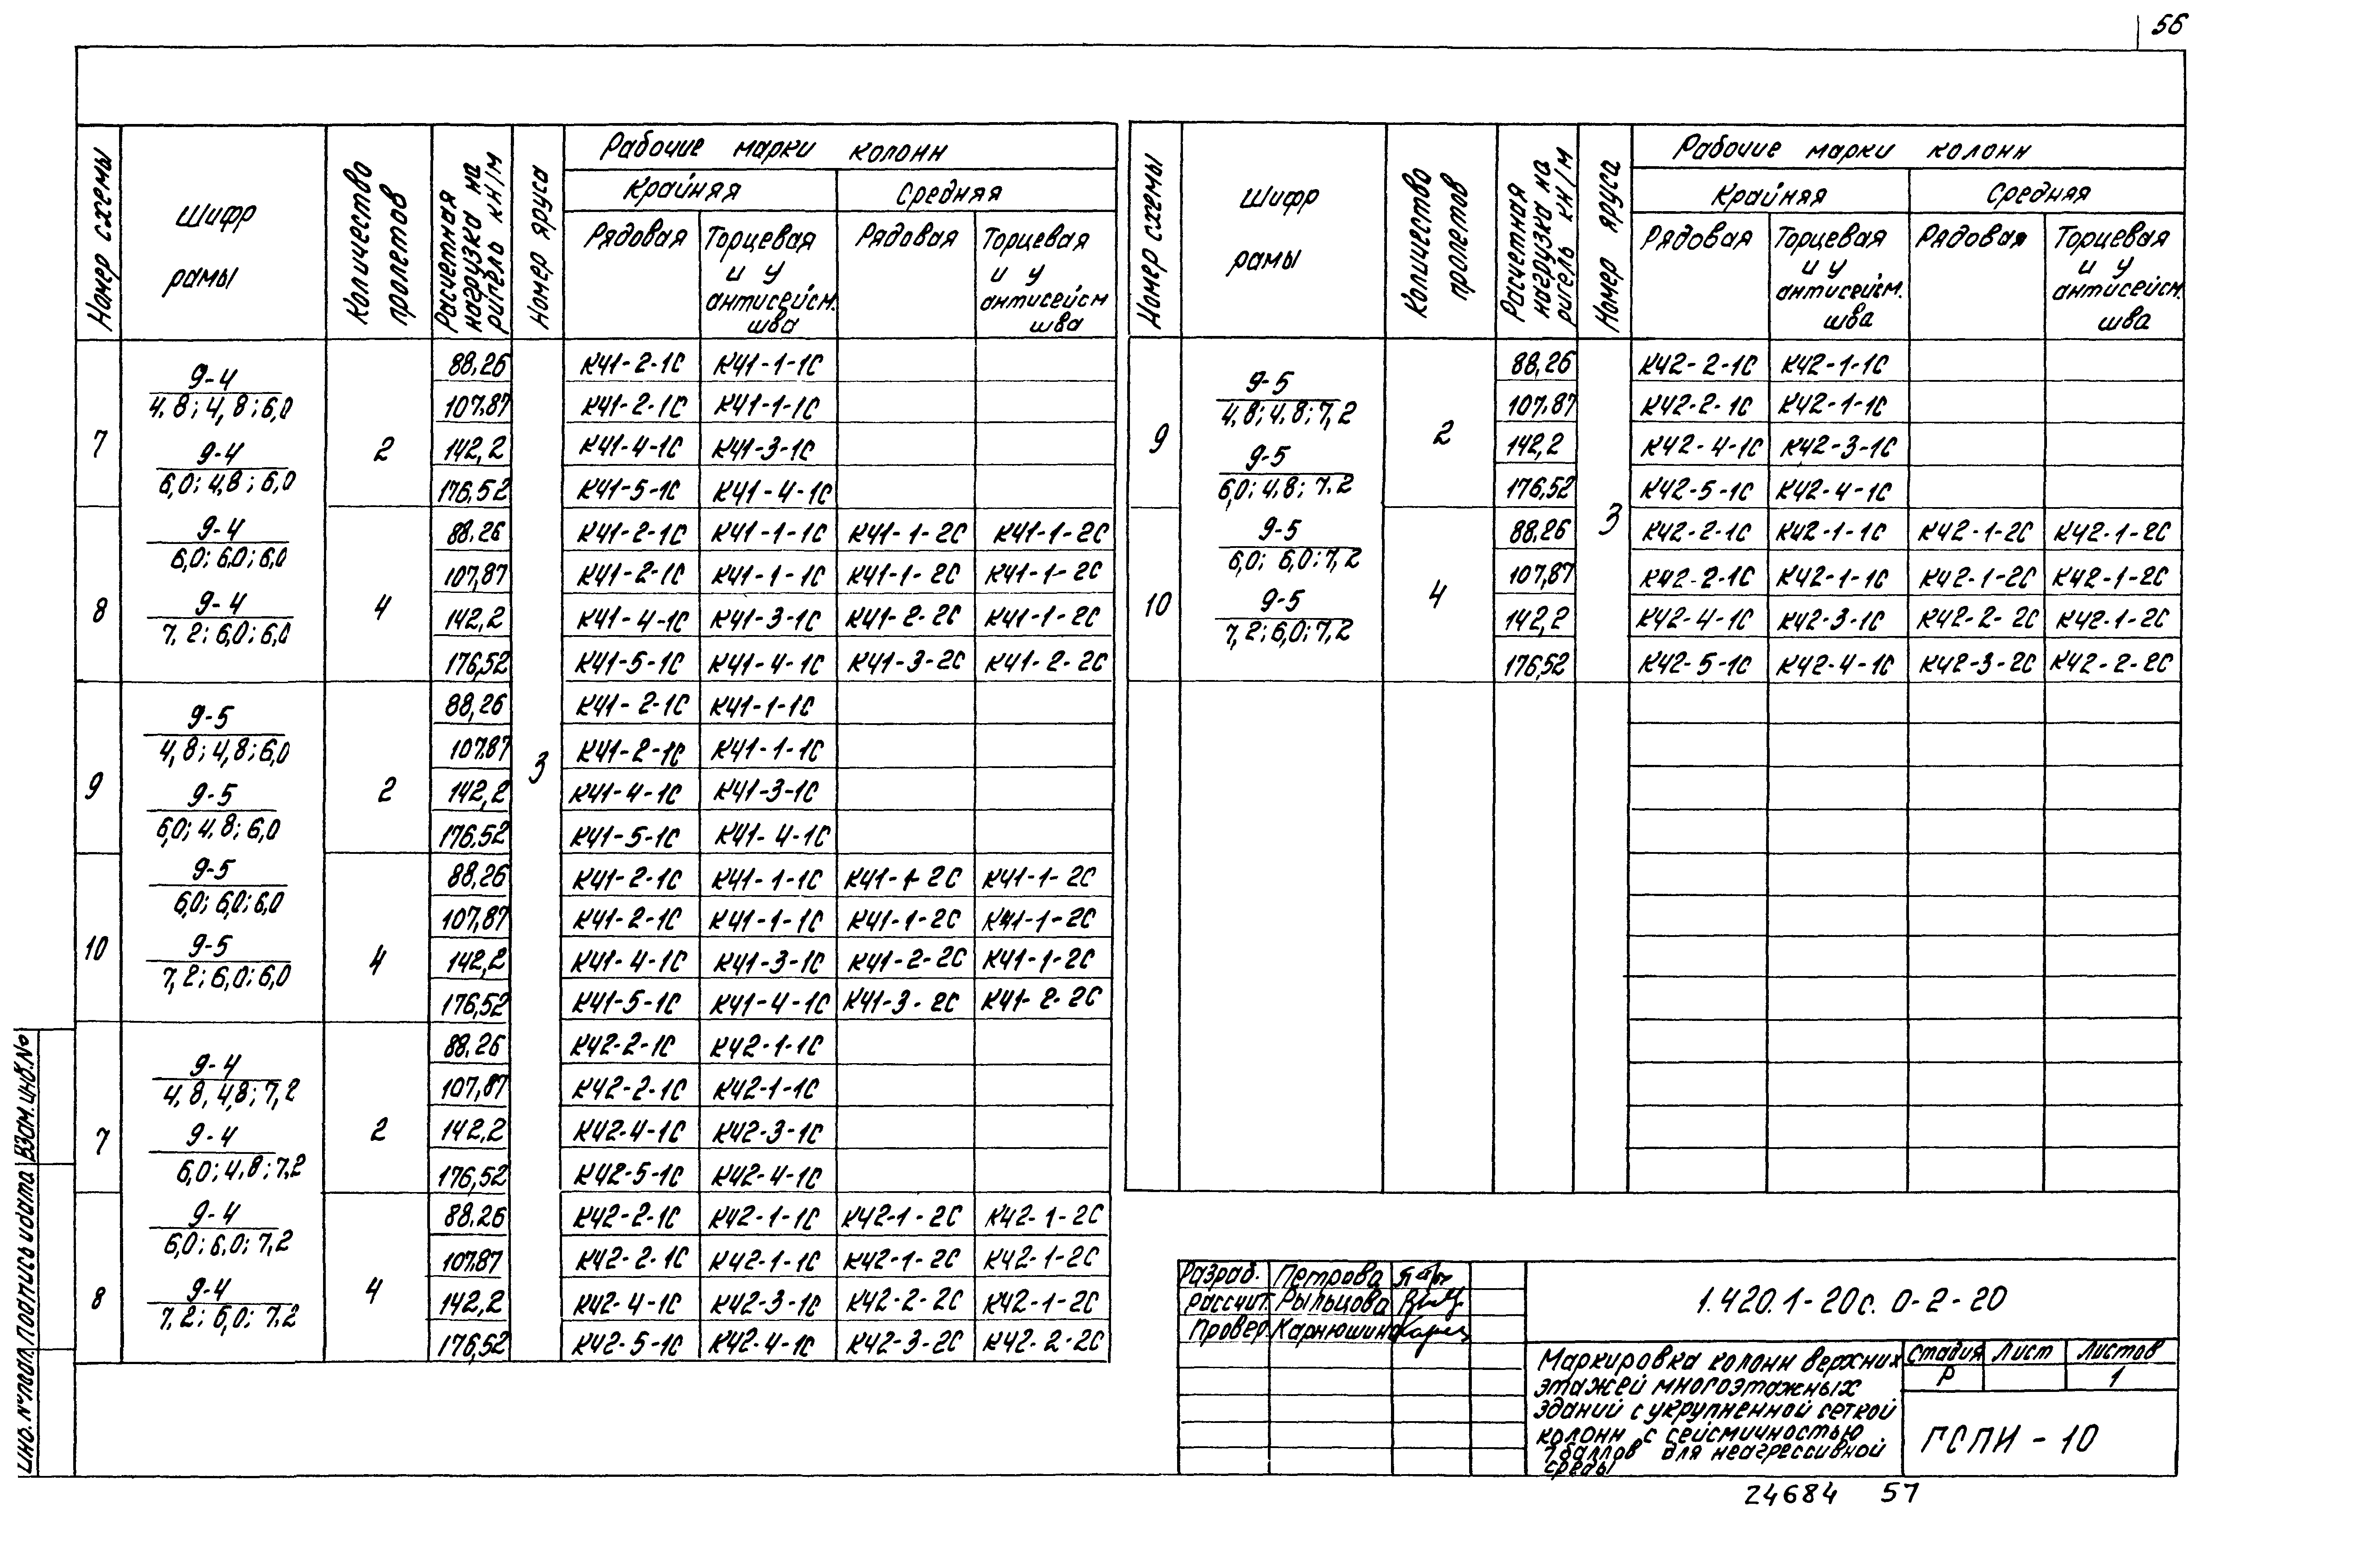 56
Номер схемы
Шифр рамы
Количество пролетов
Расчетная нагрузка на ригель кН/м
Номер яруса
Рабочие марки колонн
Крайняя
Средняя
Рядовая
Торцевая и у антисейсм. шва
Рядовая
Торцевая и у антисейсм шва
7
9-4
4,8; 4,8; 6,0
9-4
6,0; 4,8; 6,0
2
3
88,26 К41-2-1С К41-1-1С
107,87 К41-2-1С К41-1-1С
142,2 К41-4-1С К41-3-1С
176,52 К41-5-1С К41-4-1С
8
9-4
6,0; 6,0; 6,0
9-4
7,2; 6,0; 6,0
4
88,26 К41-2-1С К41-1-1С К41-1-2С К41-1-2С
107,87 К41-2-1С К41-1-1С К41-1-2С К41-1-2С
142,2 К41-4-1С К41-3-1С К41-2-2С К41-1-2С
176,52 К41-5-1С К41-4-1С К41-3-2С К41-2-2С
9
9-5
4,8; 4,8; 6,0
9-5
6,0; 4,8; 6,0
2
88,26 К41-2-1С К41-1-1С
107,87 К41-2-1С К41-1-1С
142,2 К41-4-1С К41-3-1С
176,52 К41-5-1С К41-4-1С
10
9-5
6,0; 6,0; 6,0
9-5
7,2; 6,0; 6,0
4
88,26 К41-2-1С К41-1-1С К41-1-2С К41-1-2С
107,87 К41-2-1С К41-1-1С К41-1-2С К41-1-2С
142,2 К41-4-1С К41-3-1С К41-2-2С К41-1-2С
176,52 К41-5-1С К41-4-1С К41-3-2С К41-2-2С
7
9-4
4,8, 4,8; 7,2
9-4
6,0; 4,8; 7,2
2
88,26 К42-2-1С К42-1-1С
107,87 К42-2-1С К42-1-1С
142,2 К42-4-1С К42-3-1С
176,52 К42-5-1С К42-4-1С
8
9-4
6,0; 6,0; 7,2
9-4
7,2; 6,0; 7,2
4
88,26 К42-2-1С К42-1-1С К42-1-2С К42-1-2С
107,87 К42-2-1С К42-1-1С К42-1-2С К42-1-2С
142,2 К42-4-1С К42-3-1С К42-2-2С К42-1-2С
176,52 К42-5-1С К42-4-1С К42-3-2С К42-2-2С
Номер схемы
Шифр рамы
Количество пролетов
Расчетная нагрузка на ригель кН/м
Номер яруса
Рабочие марки колонн
Крайняя
Средняя
Рядовая
Торцевая и у антисейсм. шва
Рядовая
Торцевая и у антисейсм. шва
9
9-5
4,8; 4,8; 7,2
9-5
6,0; 4,8; 7,2
2
3
88,26 К42-2-1С К42-1-1С
107,87 К42-2-1С К42-1-1С
142,2 К42-4-1С К42-3-1С
176,52 К42-5-1С К42-4-1С
10
9-5
6,0; 6,0; 7,2
9-5
7,2; 6,0; 7,2
4
88,26 К42-2-1С К42-1-1С К42-1-2С К42-1-2С
107,87 К42-2-1С К42-1-1С К42-1-2С К42-1-2С
142,2 К42-4-1С К42-3-1С К42-2-2С К42-1-2С
176,52 К42-5-1С К42-4-1С К42-3-2С К42-2-2С
Инв. № подл. Подпись и дата Взам. инв. №
Разраб. Петрова
Рассчит. Рыльцова
Провер Карнюшина
1.420.1-20с. 0-2-20
Маркировка колонн верхних
этажей многоэтажных
зданий с укрупненной сеткой
колонн с сейсмичностью
7 баллов для неагрессивной
среды
Стадия Лист Листов
Р 1
ГСПИ-10
24684 57